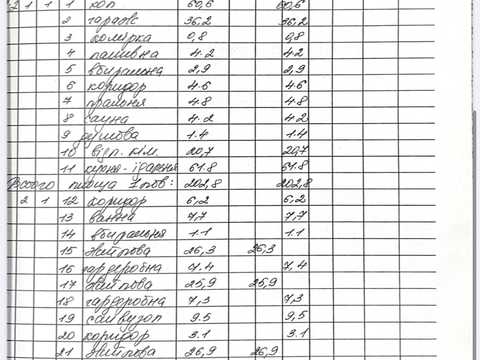 1 1 1 хол 60,6 60,6
2 гараж 36,2 36,2
3 комірка 0,8 0,8
4 паливна 4.2 4.2
5 вбиральня 2,9 2,9
6 коридор 4.6 4.6
7 пральня 4.8 4.8
8 сауна 4.2 4.2
9 душова 1.4 1.4
10 відп. кім. 20,7 20,7
11 кухня-їдальня 61.8 61.8
Всього площа 1 пов: 202,8 202,8
2 1 12 коридор 6,2 6,2
13 ванна 7,7 7,7
14 вбиральня 1.1 1.1
15 житлова 26,3 26,3
16 гардеробна 7,4 7,4
17 житлова 25,9 25,9
18 гардеробна 7,3 7,3
19 санвузол 9.5 9,5
20 коридор 3.1 3.1
21 житлова 26,9 26,9